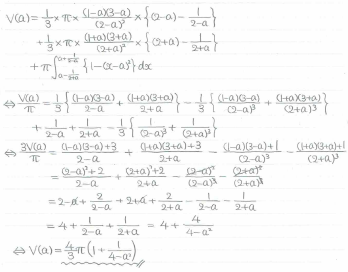 V(a) = 1/3 × π × (1-a)(3-a)/(2-a)² × {(2-a) - 1/(2-a)}
+ 1/3 × π × (1+a)(3+a)/(2+a)² × {(2+a) - 1/(2+a)}
+ π ∫_{a-1/(2-a)}^{a+1/(2+a)} {1-(x-a)²} dx
⇔ V(a)/π = 1/3 {(1-a)(3-a)/(2-a) + (1+a)(3+a)/(2+a)} - 1/3 {(1-a)(3-a)/(2-a)³ + (1+a)(3+a)/(2+a)³}
+ 1/(2-a) + 1/(2+a) - 1/3 {1/(2-a)³ + 1/(2+a)³}
⇔ 3V(a)/π = ((1-a)(3-a)+3)/(2-a) + ((1+a)(3+a)+3)/(2+a) - ((1-a)(3-a)+1)/(2-a)³ - ((1+a)(3+a)+1)/(2+a)³
= ((2-a)²+2)/(2-a) + ((2+a)²+2)/(2+a) - (2-a)²/(2-a)³ - (2+a)²/(2+a)³
= 2-a + 2/(2-a) + 2+a + 2/(2+a) - 1/(2-a) - 1/(2+a)
= 4 + 1/(2-a) + 1/(2+a) = 4 + 4/(4-a²)
⇔ V(a) = 4/3 π (1 + 1/(4-a²))